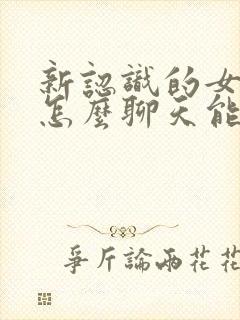 新認識的女
怎麼聊天能
爭斤論兩花花